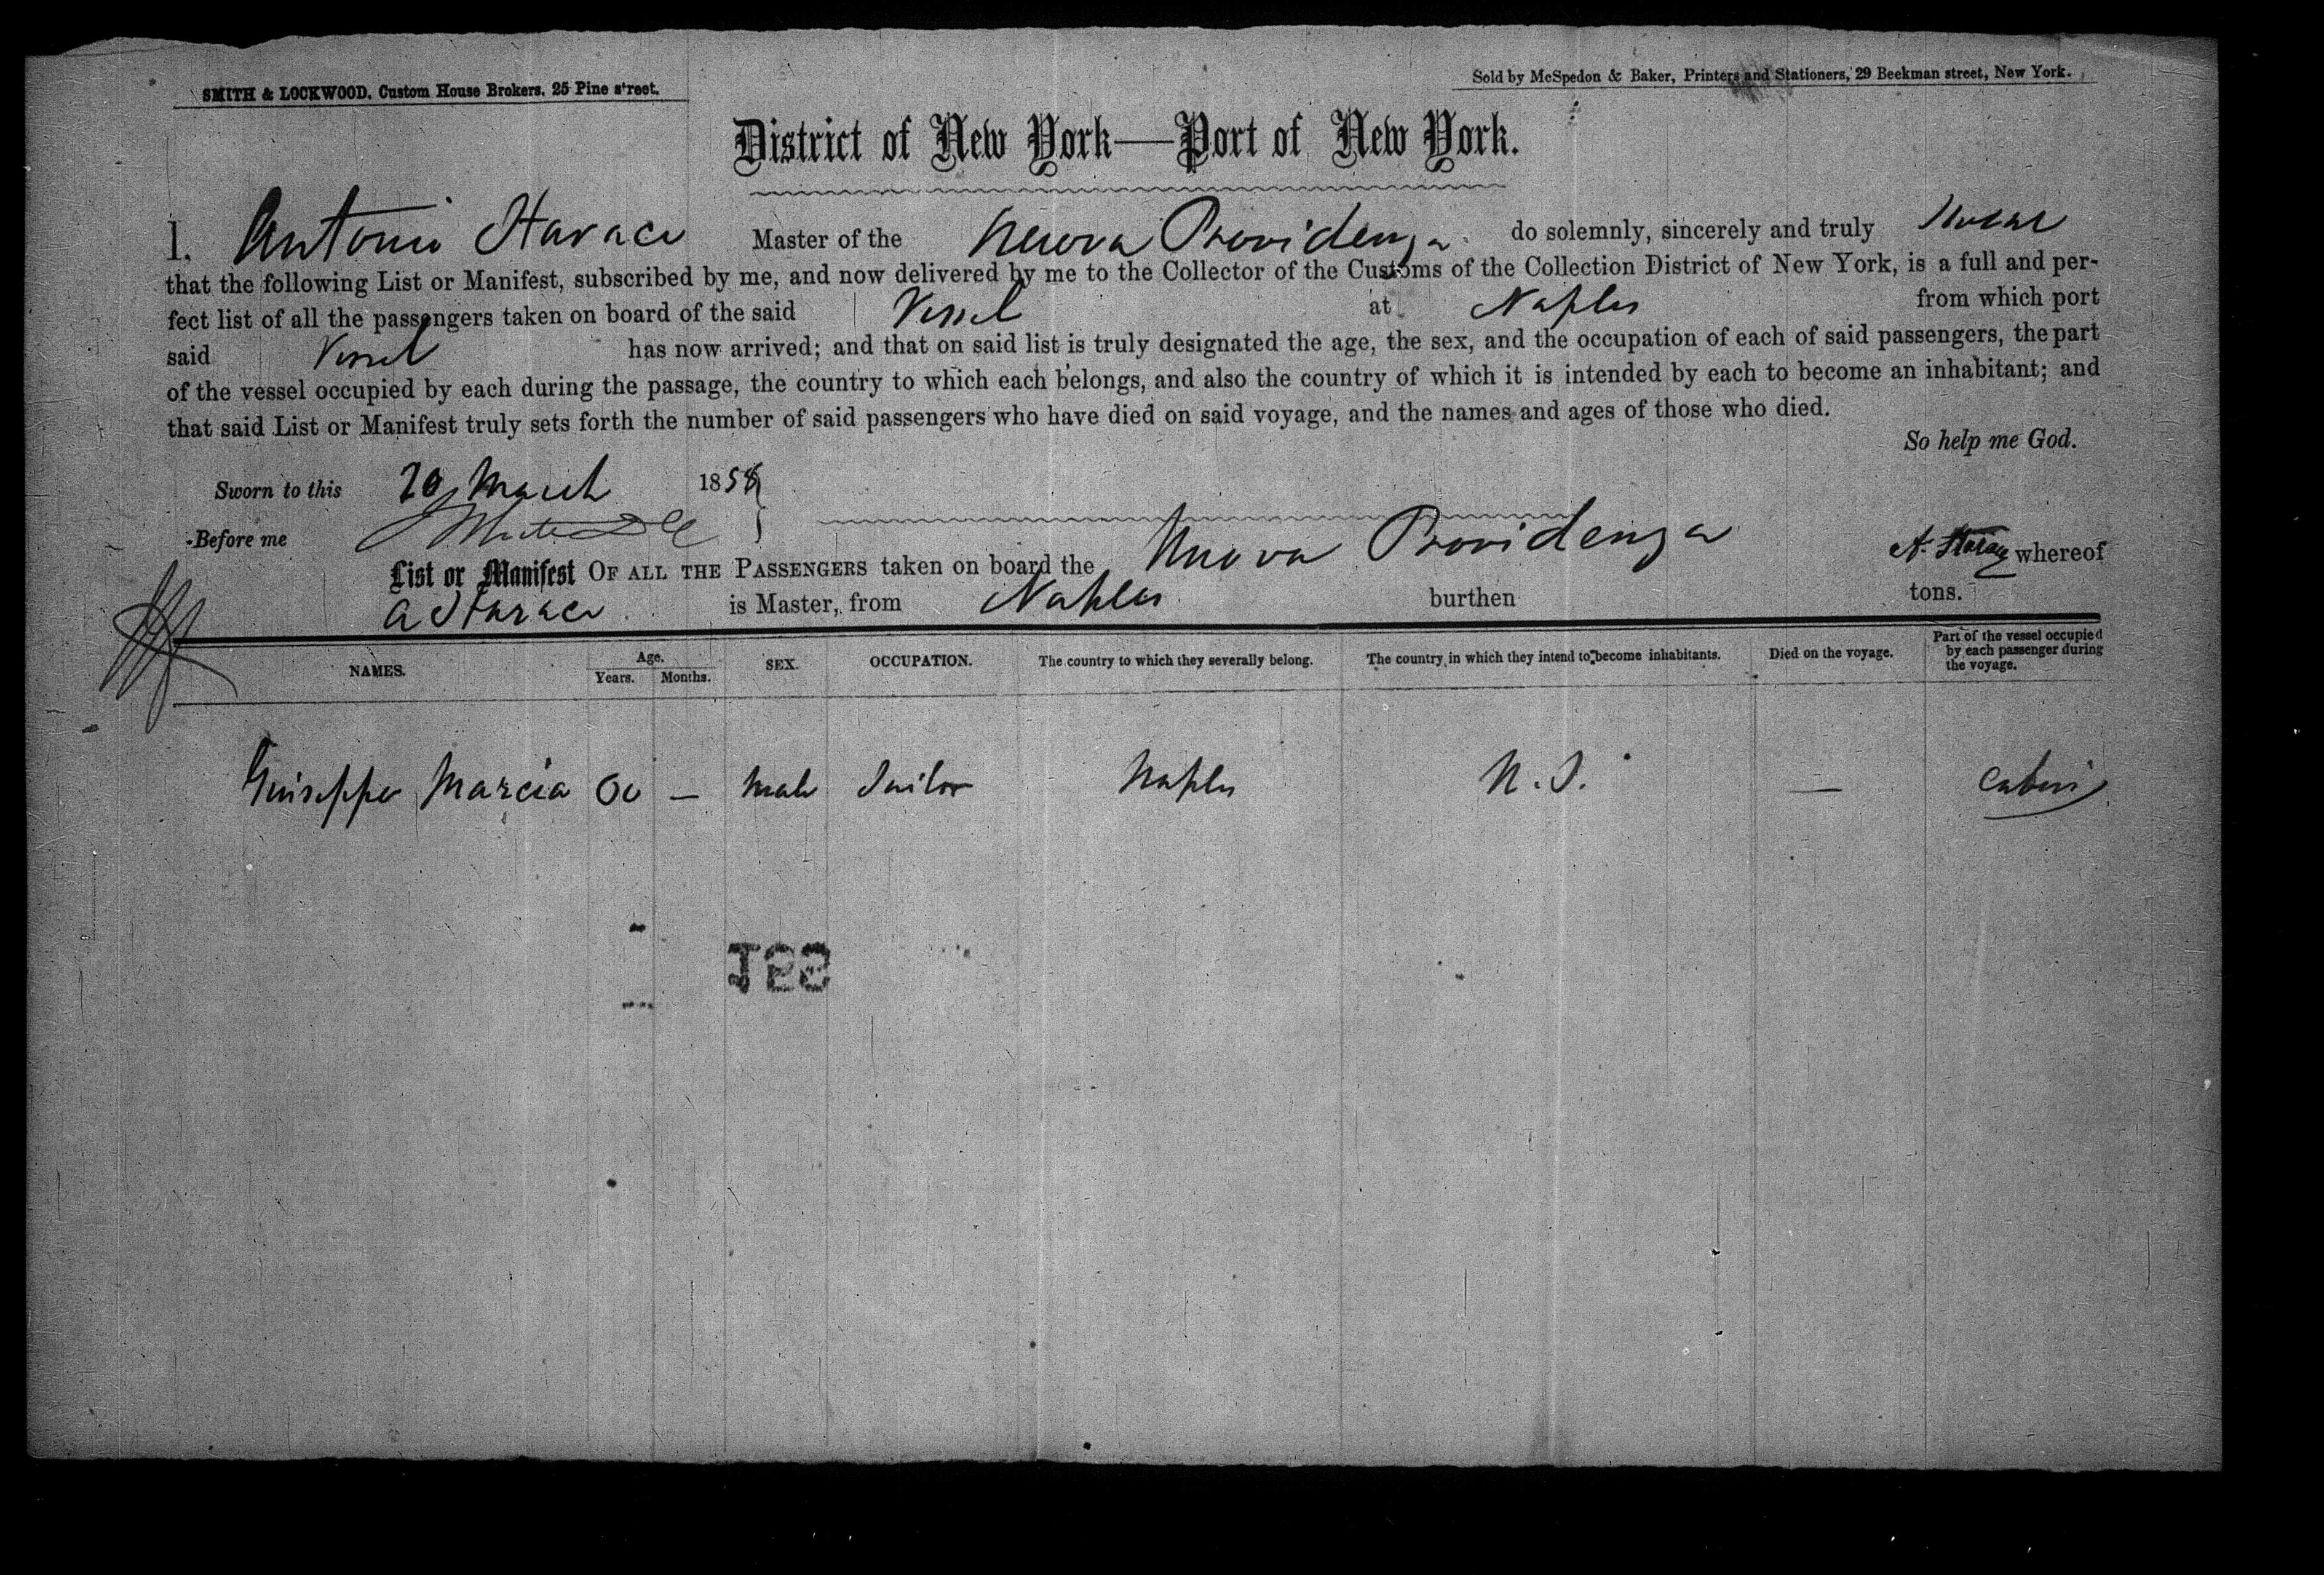 SMITH & LOCKWOOD. Custom House Brokers. 25 Pine street.
Sold by McSpedon & Baker, Printers and Stationers, 29 Beekman street, New York.
District of New York—Port of New York.
I. Antonio Starace Master of the Nuova Providenza do solemnly, sincerely and truly swear
that the following List or Manifest, subscribed by me, and now delivered by me to the Collector of the Customs of the Collection District of New York, is a full and per-
fect list of all the passengers taken on board of the said Vessel at Naples from which port
said Vessel has now arrived; and that on said list is truly designated the age, the sex, and the occupation of each of said passengers, the part
of the vessel occupied by each during the passage, the country to which each belongs, and also the country of which it is intended by each to become an inhabitant; and
that said List or Manifest truly sets forth the number of said passengers who have died on said voyage, and the names and ages of those who died.
So help me God.
Sworn to this 20 March 1858
Before me
List or Manifest OF ALL THE PASSENGERS taken on board the Nuova Providenza whereof
A Starace is Master, from Naples burthen tons.
NAMES. Age. Years. Months. SEX. OCCUPATION. The country to which they severally belong. The country in which they intend to become inhabitants. Died on the voyage. Part of the vessel occupied by each passenger during the voyage.
Guiseppe Marcia — male Sailor Naples — Cabin